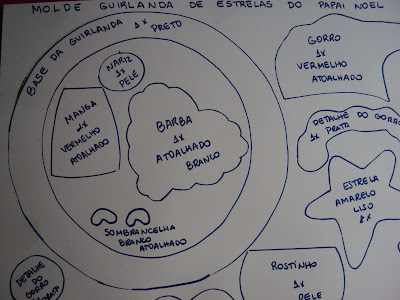 MOLDE GUIRLANDA DE ESTRELAS DO PAPAI NOEL
BASE DA GUIRLANDA 1X PRETO
GORRO
1X
VERMELHO
ATOALHADO
NARIZ
1X
PELE
MANGA
2X
VERMELHO
ATOALHADO
BARBA
1X
ATOALHADO
BRANCO
DETALHE DO GORRO
1X PRATA
ESTRELA
AMARELO
LISO
8X
SOMBRANCELHA
BRANCO
ATOALHADO
DETALHE
DO
GORRO
PRATA
ROSTINHO
1X
PELE